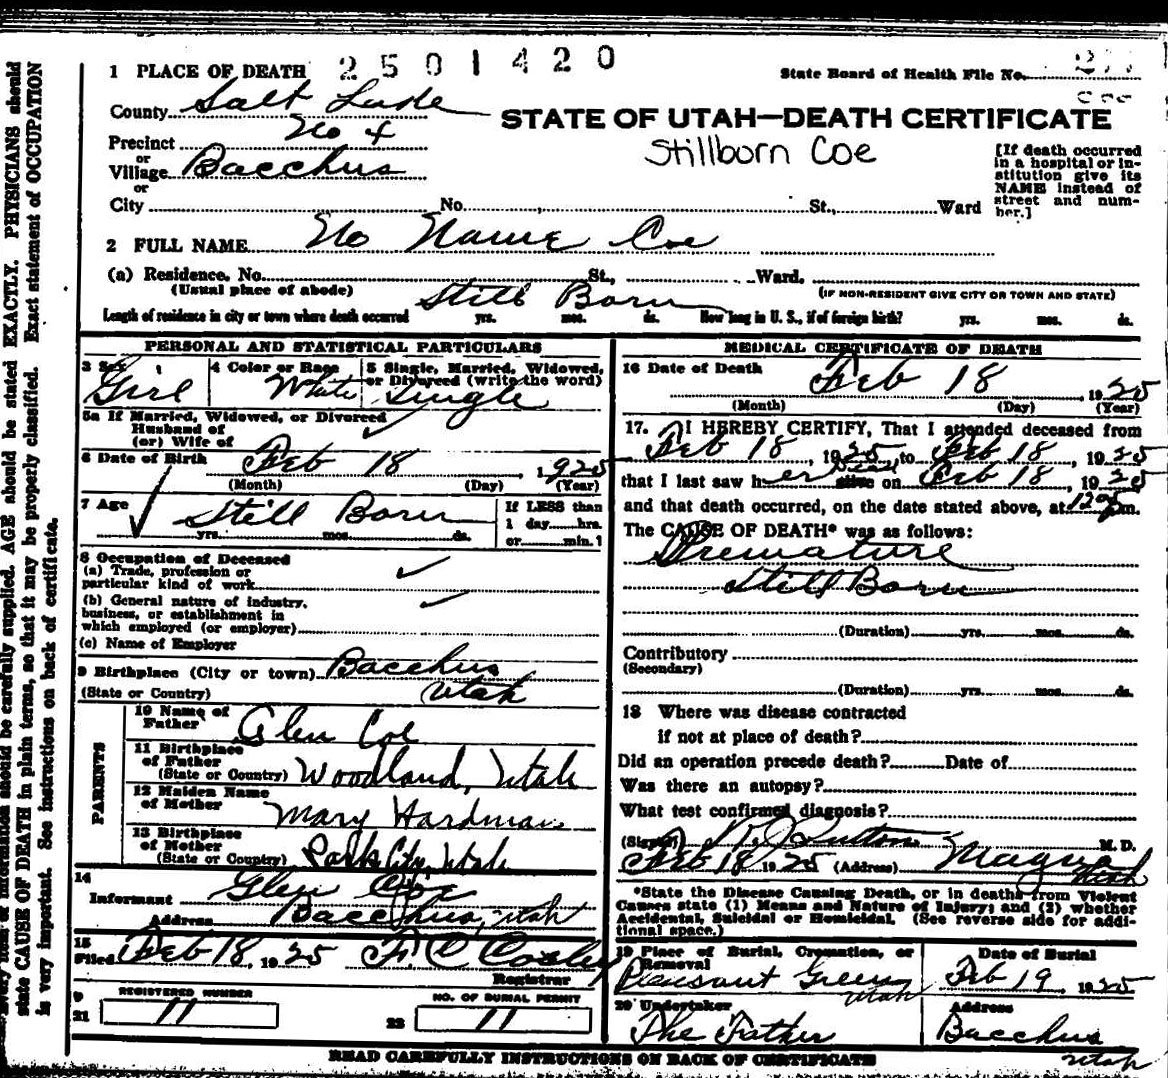 2501420
1 PLACE OF DEATH
State Board of Health File No.
County Salt Lake
Coe
STATE OF UTAH—DEATH CERTIFICATE
Precinct No 4
Stillborn Coe
or
Village Bacchus
or
City No. St., Ward
[If death occurred
in a hospital or in-
stitution give its
NAME instead of
street and num-
ber.]
2 FULL NAME No Name Coe
(a) Residence. No. St., Ward.
(Usual place of abode)
(IF NON-RESIDENT GIVE CITY OR TOWN AND STATE)
Still Born
Length of residence in city or town where death occurred yrs. mos. ds. How long in U. S., if of foreign birth? yrs. mos. ds.
PERSONAL AND STATISTICAL PARTICULARS
3 Sex
Girl
4 Color or Race
White
5 Single, Married, Widowed,
or Divorced (write the word)
Single
5a If Married, Widowed, or Divorced
Husband of
(or) Wife of
6 Date of Birth Feb 18 1925
(Month) (Day) (Year)
7 Age Still Born
yrs. mos. ds.
If LESS than
1 day hrs.
or min.?
8 Occupation of Deceased
(a) Trade, profession or
particular kind of work
(b) General nature of industry,
business, or establishment in
which employed (or employer)
(c) Name of Employer
9 Birthplace (City or town) Bacchus
(State or Country) Utah
PARENTS
10 Name of
Father Glen Coe
11 Birthplace
of Father
(State or Country) Woodland, Utah
12 Maiden Name
of Mother Mary Hardman
13 Birthplace
of Mother
(State or Country) Park City, Utah
14
Informant Glen Coe
Address Bacchus, Utah
15
Filed Feb 18, 1925
Registrar
21 REGISTERED NUMBER
11
22 NO. OF BURIAL PERMIT
11
MEDICAL CERTIFICATE OF DEATH
16 Date of Death Feb 18, 1925
(Month) (Day) (Year)
17. I HEREBY CERTIFY, That I attended deceased from
Feb 18, 1925, to Feb 18, 1925
dead
that I last saw her alive on Feb 18, 1925
and that death occurred, on the date stated above, at m.
The CAUSE OF DEATH* was as follows:
Premature
Still Born
(Duration) yrs. mos. ds.
Contributory
(Secondary)
(Duration) yrs. mos. ds.
18 Where was disease contracted
if not at place of death?
Did an operation precede death? Date of
Was there an autopsy?
What test confirmed diagnosis?
(Signed) M. D.
Feb 18 1925 (Address) Magna
Utah
*State the Disease Causing Death, or in deaths from Violent
Causes state (1) Means and Nature of Injury; and (2) whether
Accidental, Suicidal or Homicidal. (See reverse side for addi-
tional space.)
19 Place of Burial, Cremation, or
Removal
Pleasant Green
Utah
Date of Burial
Feb 19, 1925
20 Undertaker
The Father
Address
Bacchus
Utah
READ CAREFULLY INSTRUCTIONS ON BACK OF CERTIFICATE
information should be carefully supplied. AGE should be stated EXACTLY. PHYSICIANS should
state CAUSE OF DEATH in plain terms, so that it may be properly classified. Exact statement of OCCUPATION
is very important. See instructions on back of certificate.